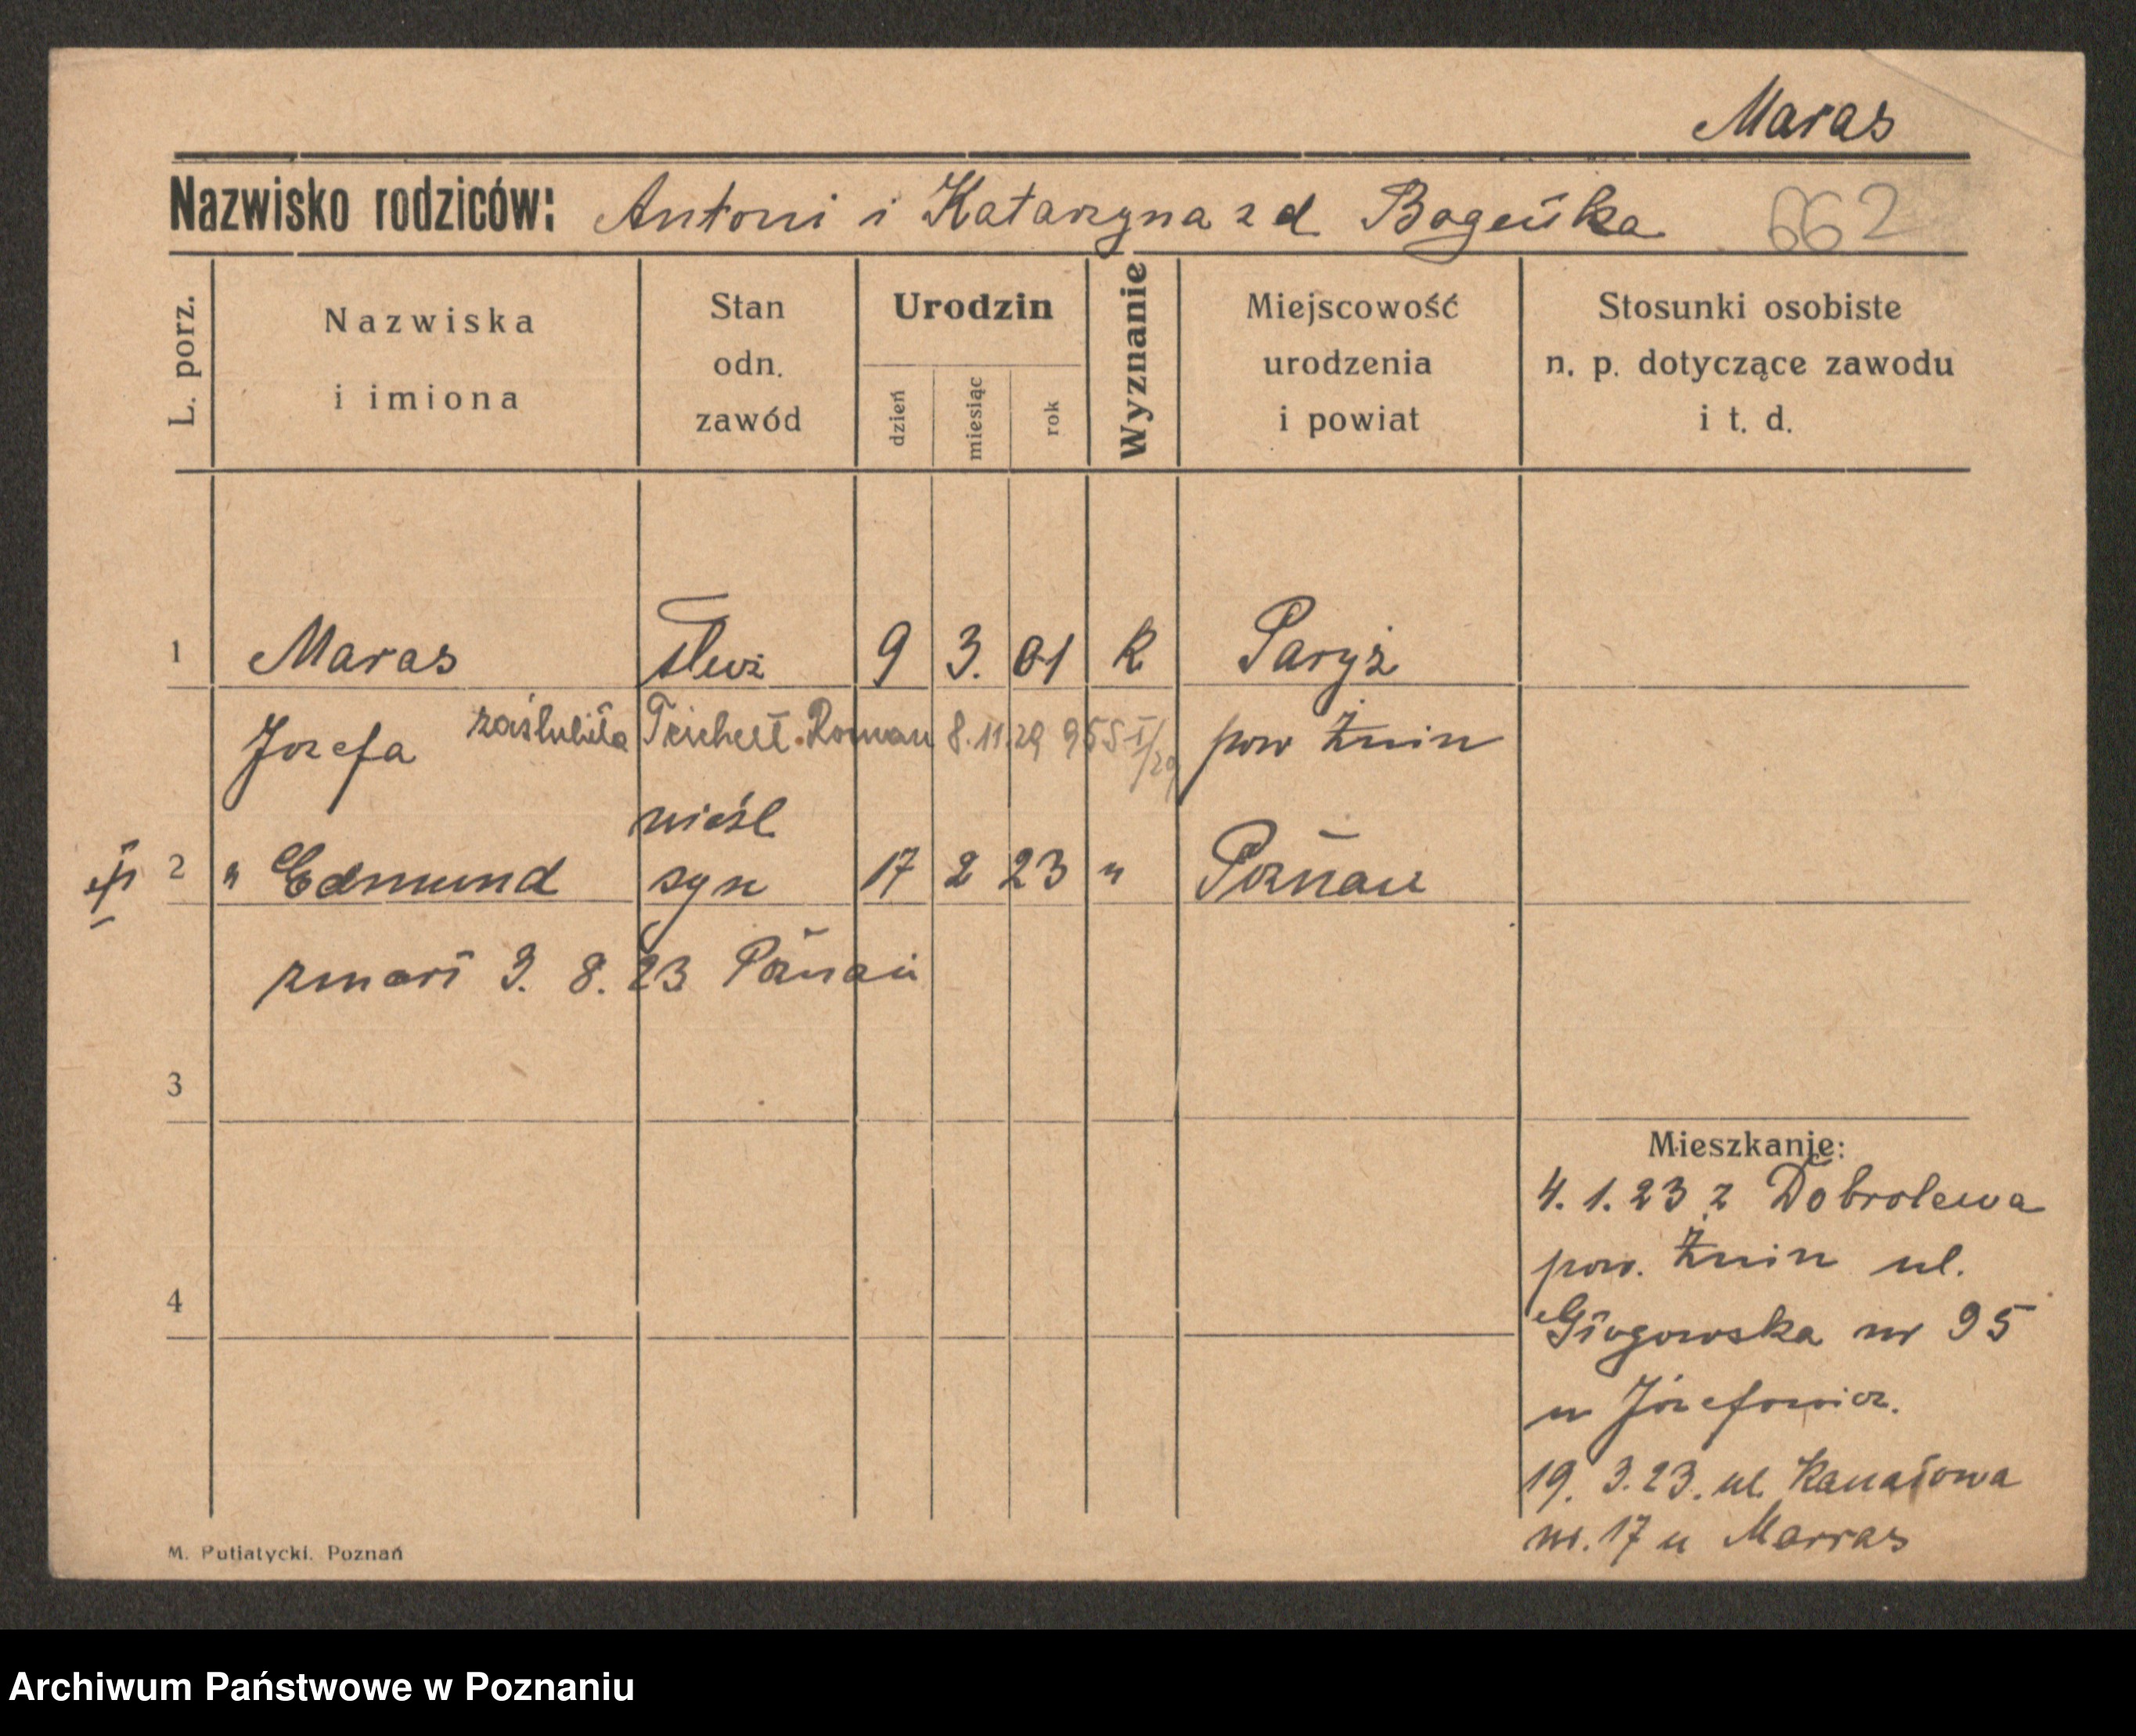 Maras
Nazwisko rodziców: Antoni i Katarzyna z d. Bogeńka 662
L. porz.
Nazwiska
i imiona
Stan
odn.
zawód
Urodzin
dzień
miesiąc
rok
Wyznanie
Miejscowość
urodzenia
i powiat
Stosunki osobiste
n. p. dotyczące zawodu
i t. d.
1 Maras 9 3. 01 K Paryż
Jozefa zaślubiła Teichert Roman 8.11.29 pow Żnin
nieśl
2 " Edmund syn 17 2 23 " Poznań
zmarł 3. 8. 23 Poznań
3
4
Mieszkanie:
4. 1. 23 z Dobrolewa
pow. Żnin ul.
Głogowska nr 95
u Józefowicz.
19. 3. 23. ul. Kanałowa
nr. 17 u Marras
M. Putiatycki. Poznań
Archiwum Państwowe w Poznaniu